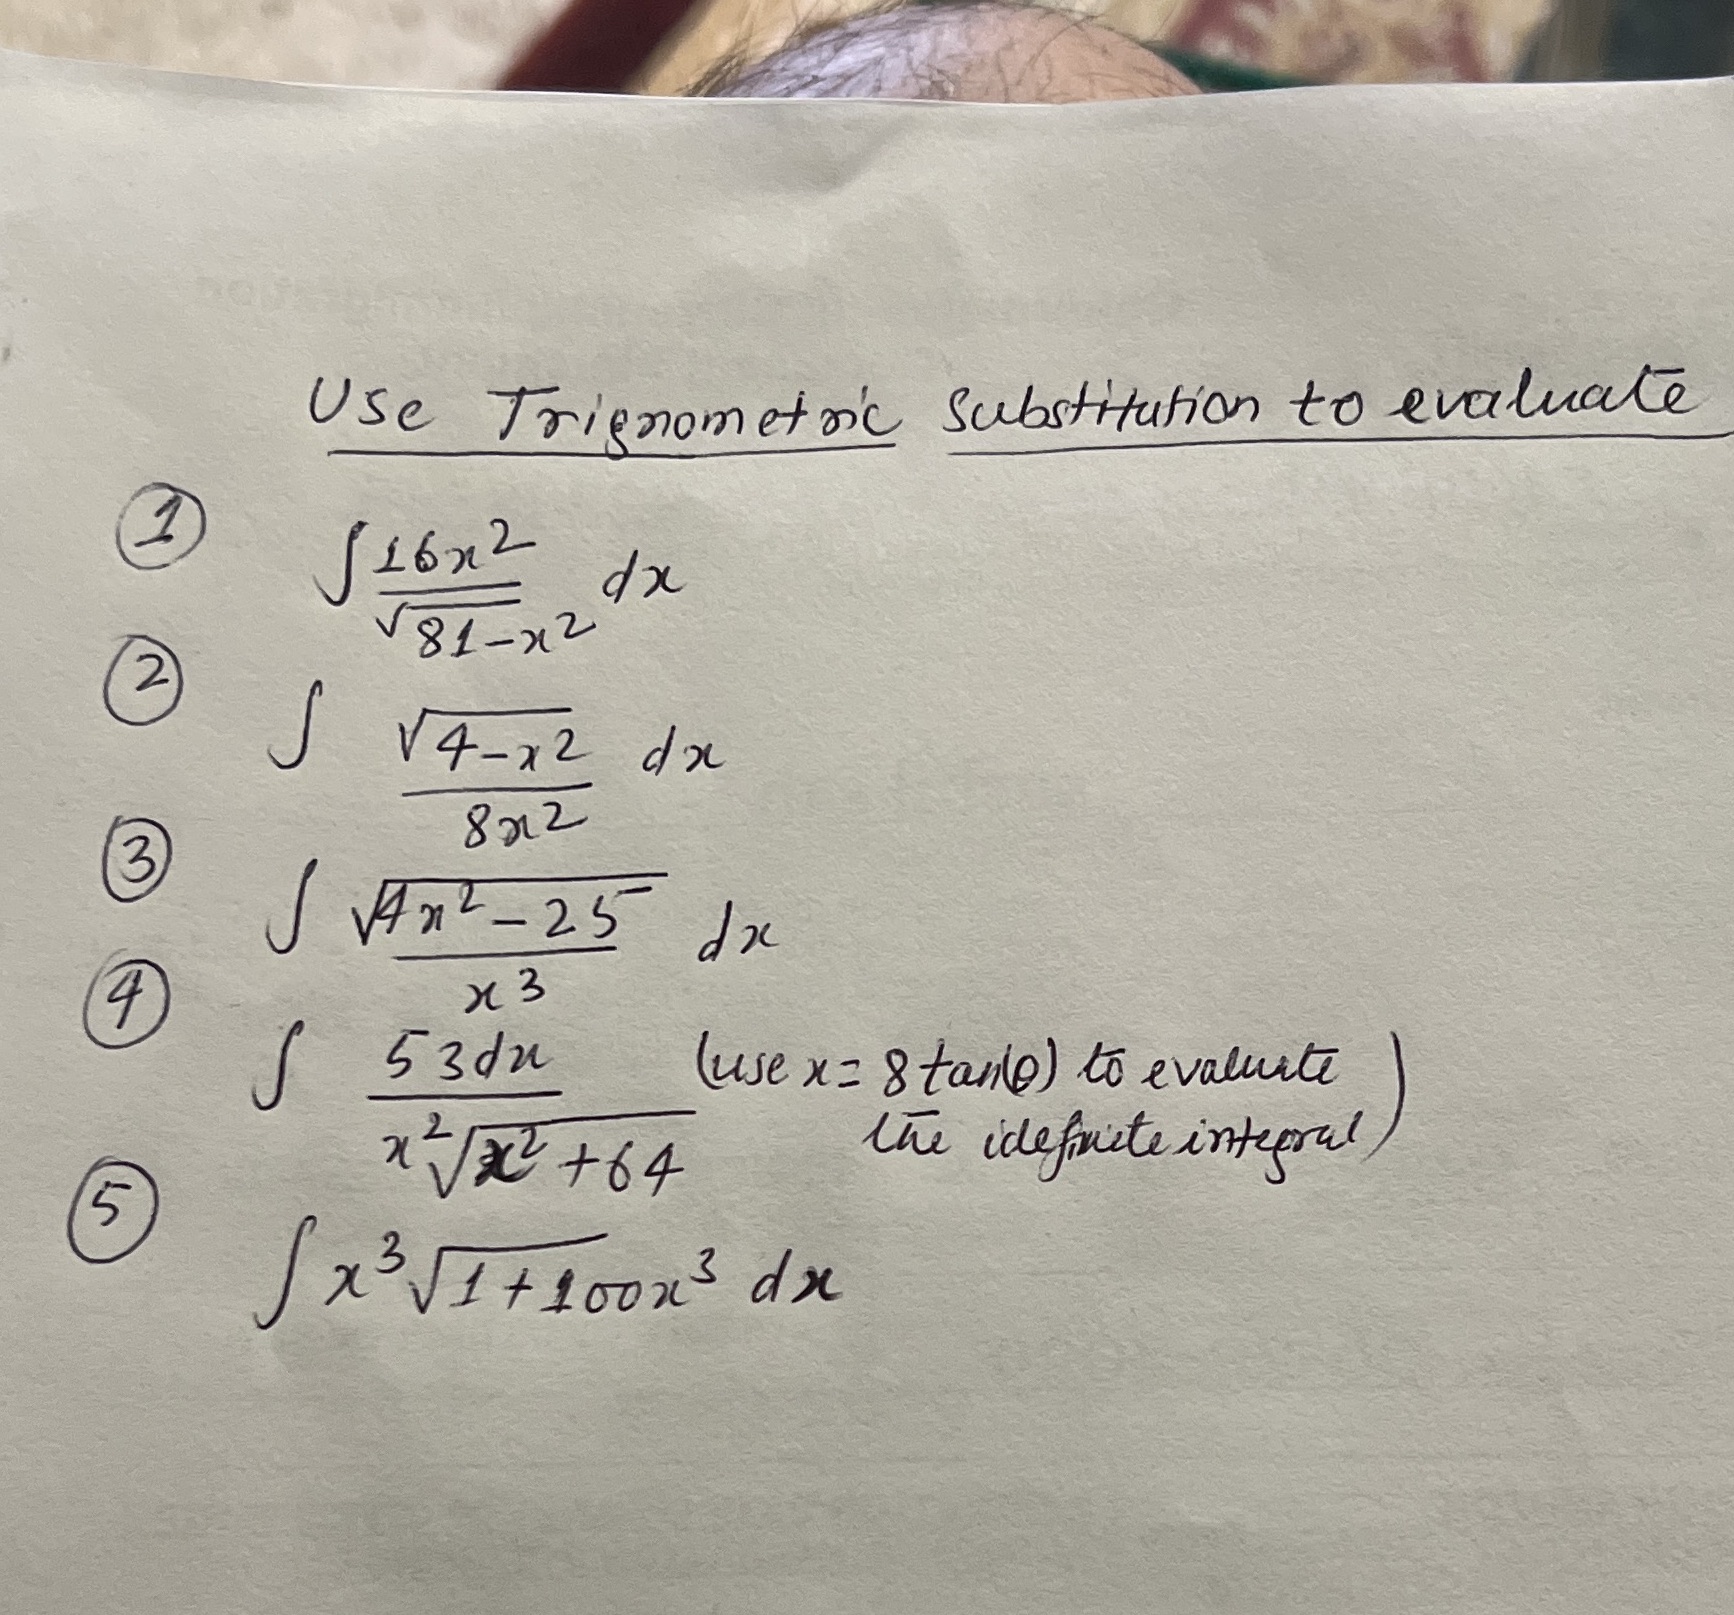 Use Trignometric Substitution to evaluate
① ∫ 16x² / √81-x² dx
② ∫ √4-x² / 8x² dx
③ ∫ √4x²-25 / x³ dx
④ ∫ 53dx / x²√x²+64 (use x = 8tan(θ) to evaluate
the idefinite integral)
⑤ ∫ x³√1+100x³ dx